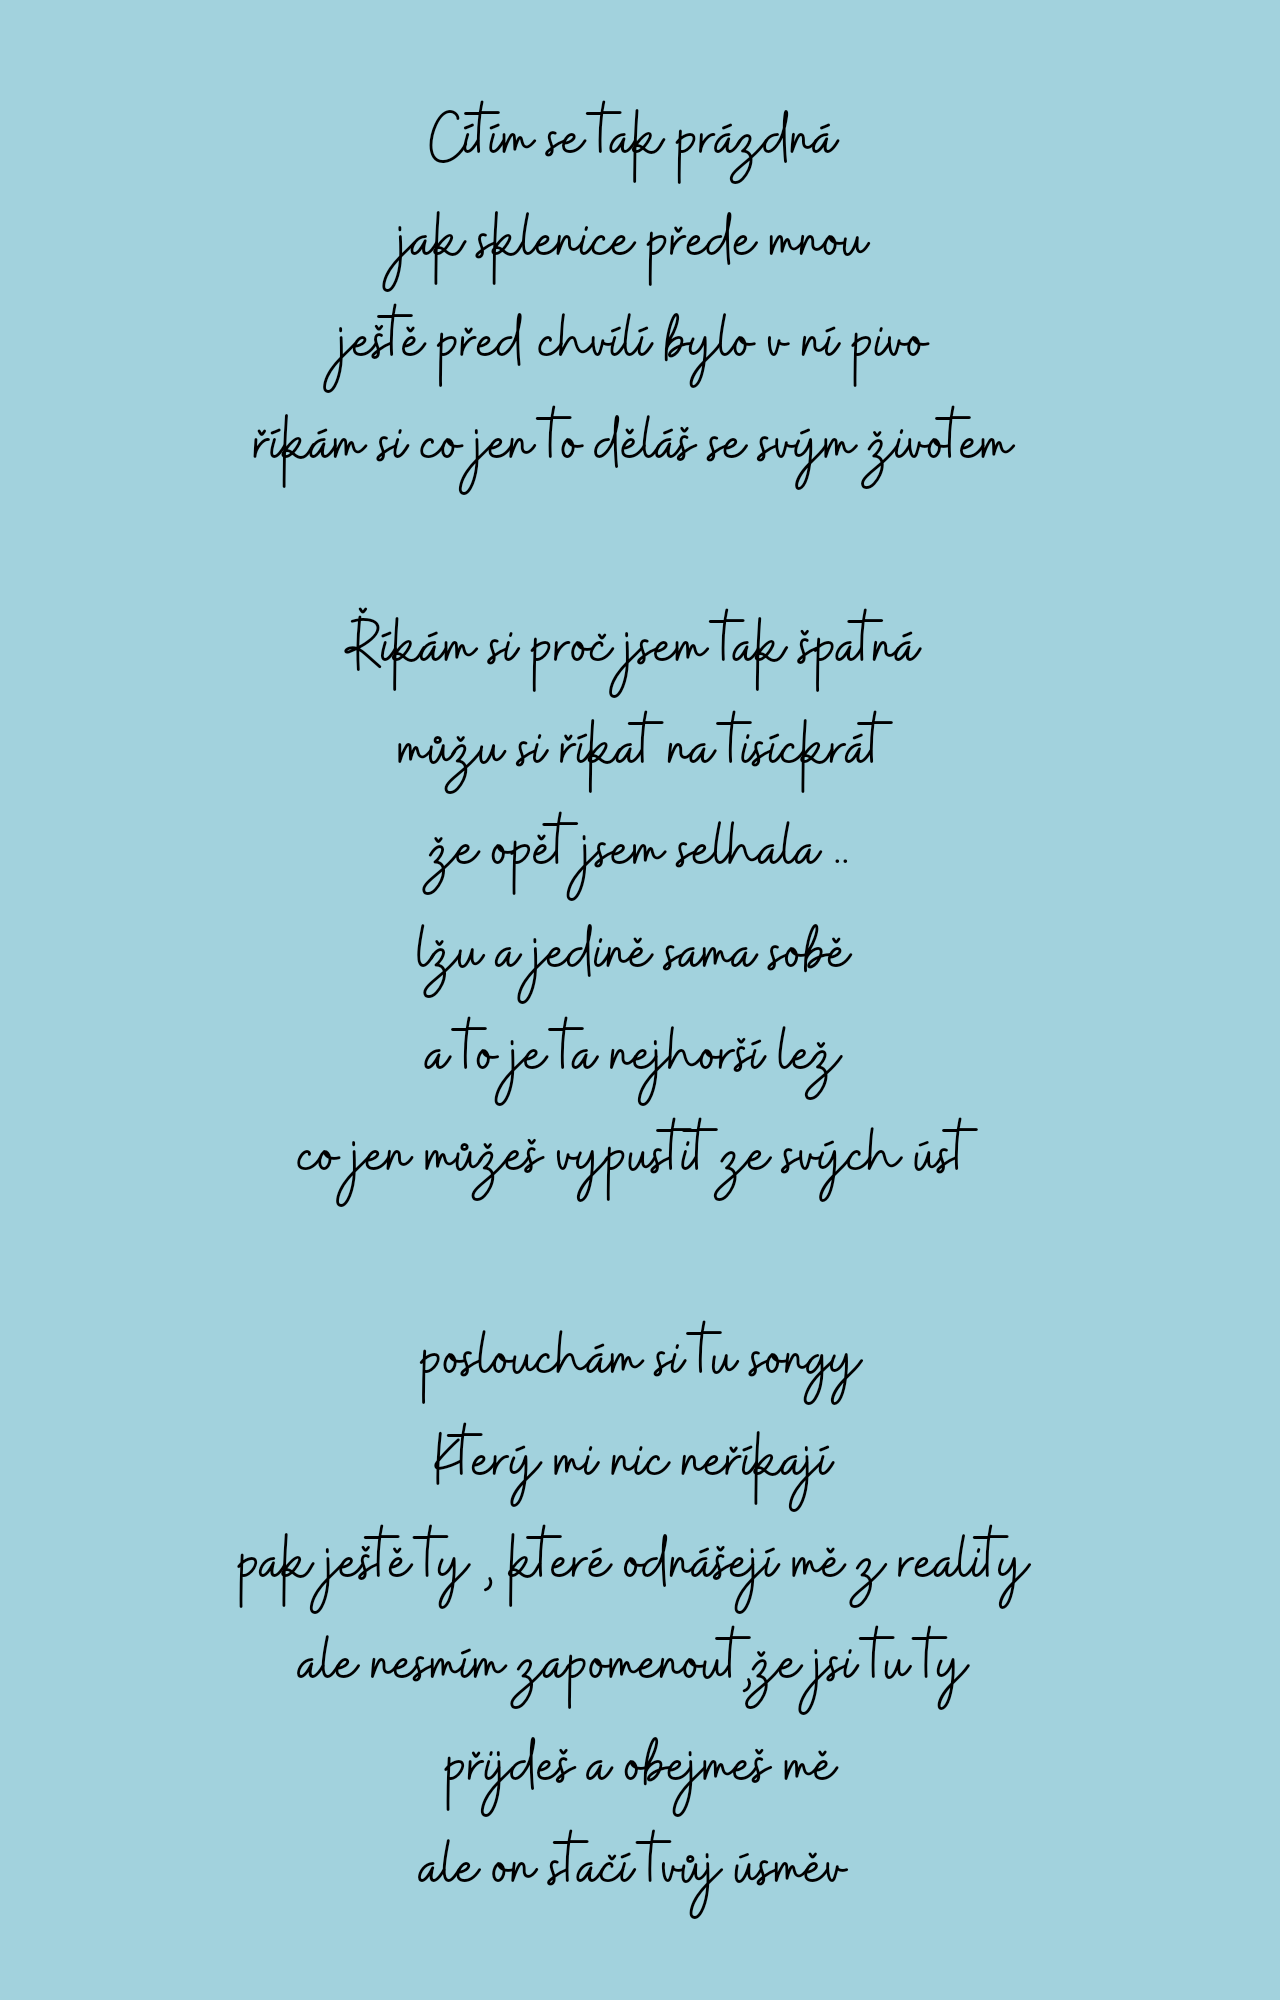 Cítím se tak prázdná
jak sklenice přede mnou
ještě před chvílí bylo v ní pivo
říkám si co jen to děláš se svým životem
Říkám si proč jsem tak špatná
můžu si říkat na tisíckrát
že opět jsem selhala ..
lžu a jedině sama sobě
a to je ta nejhorší lež
co jen můžeš vypustit ze svých úst
poslouchám si tu songy
Který mi nic neříkají
pak ještě ty , které odnášejí mě z reality
ale nesmím zapomenout,že jsi tu ty
přijdeš a obejmeš mě
ale on stačí tvůj úsměv